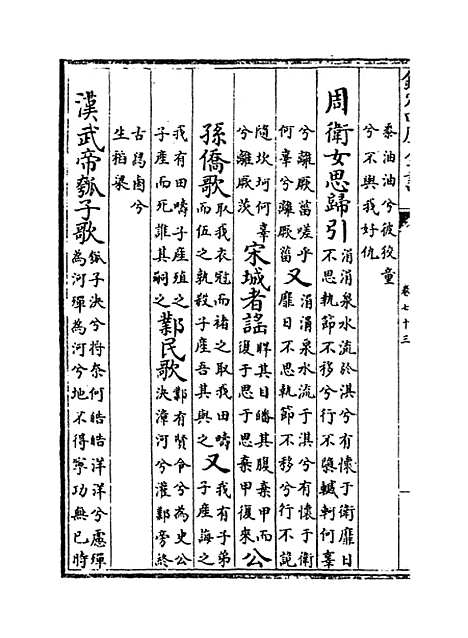 卷七十三
黍油油兮彼狡童
兮不與我好仇
周衛女思歸引
涓涓泉水流於淇兮有懷于衛靡日
不思執節不移兮行不隳轗軻何辜
兮離厥菑嗟乎
何辜兮離厥菑
又
涓涓泉水流于淇兮有懷于衛
靡日不思執節不移兮行不詭
隨坎坷何辜
兮離厥茨
宋城者謠
睅其目皤其腹棄甲而
復于思于思棄甲復來
公
孫僑歌
取我衣冠而褚之取我田疇
而伍之孰殺子產吾其與之
又
我有子弟
子產誨之
我有田疇子產殖之
子產而死誰其嗣之
鄴民歌
鄴有賢令兮為史公
決漳河兮灌鄴旁終
古舄鹵兮
生稻粱
漢武帝瓠子歌
瓠子決兮將奈何皓皓洋洋兮慮殫
為河殫為河兮地不得寧功無已時